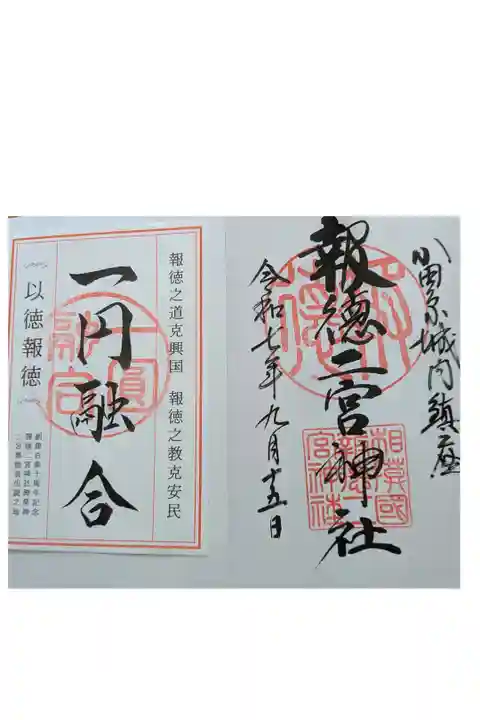 小田原城内鎮座
報徳二宮神社
令和七年九月十五日
相模國
報徳之道克興国 報徳之教克安民
一円融合
一圓
融合
以徳報徳